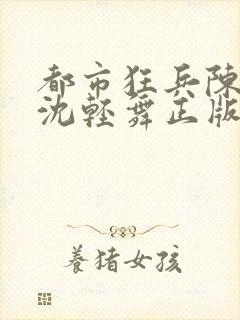 都市狂兵陳
沈輕舞正版
養猪女孩